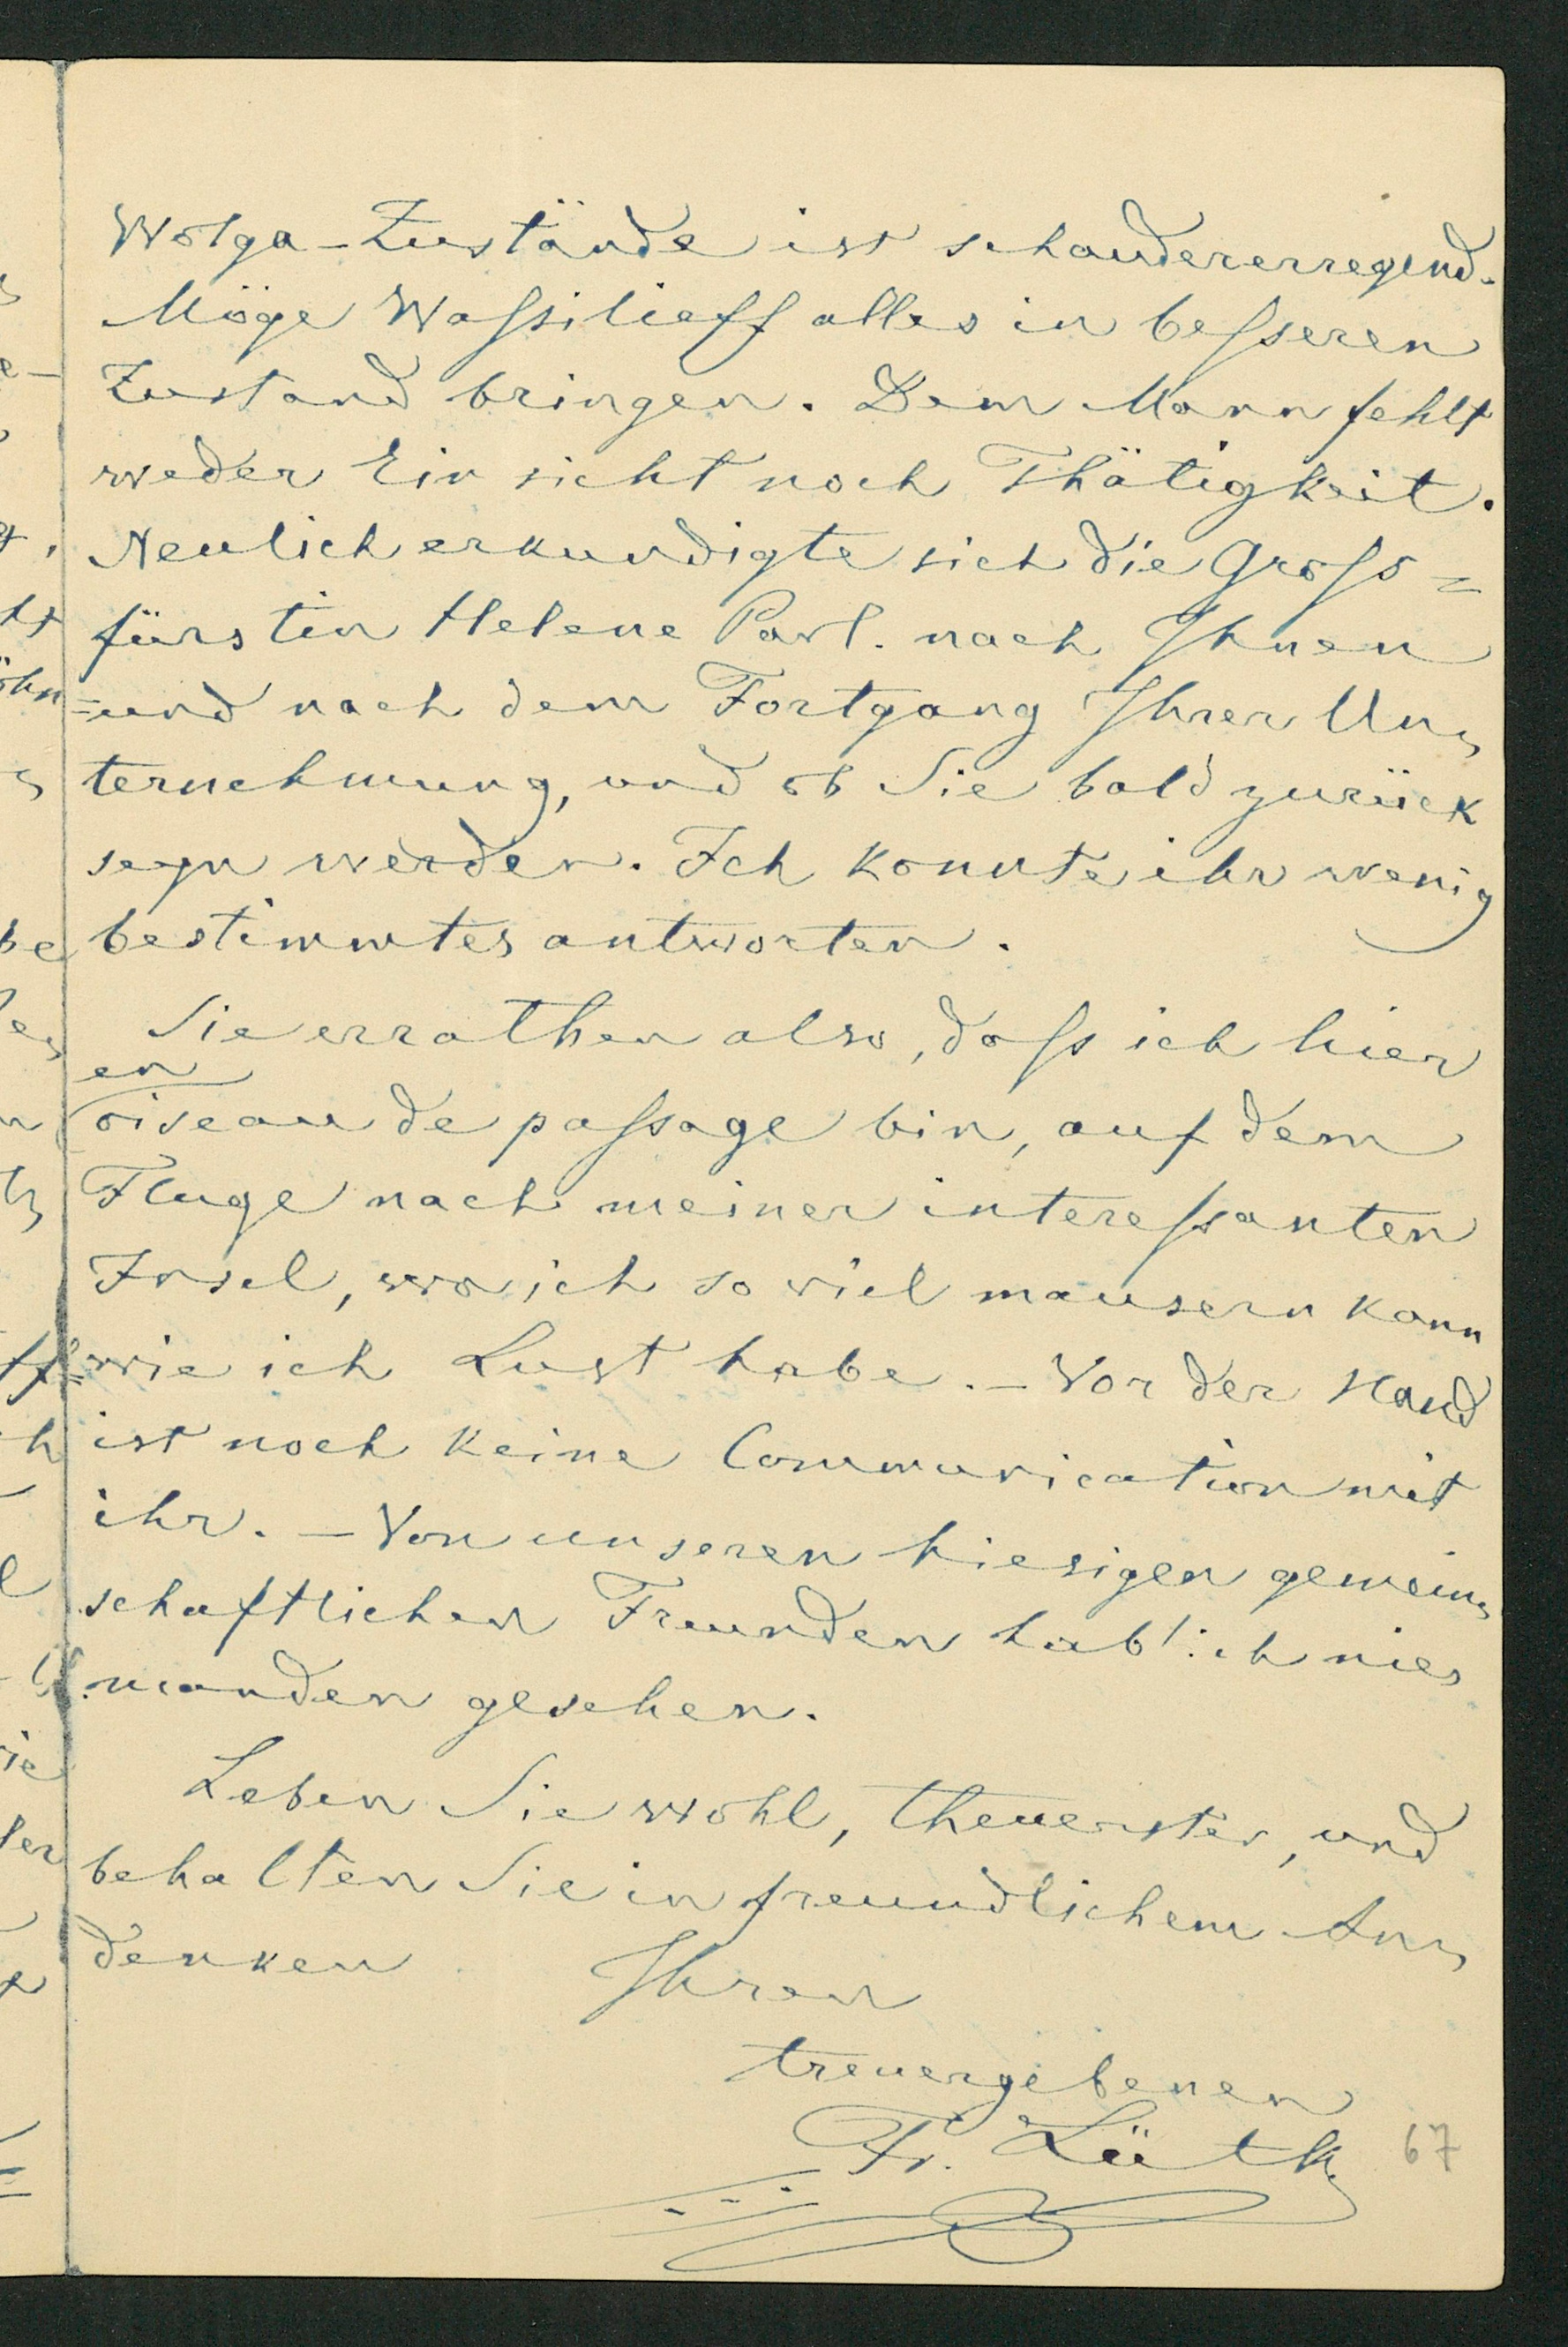 Wolga-Zustände ist schaudererregend.
Möge Wassilieff alles in besseren
Zustand bringen. Dem Mann fehlt
weder Einsicht noch Thätigkeit.
Neulich erkundigte sich die Gross=
fürstin Helene Pavl. nach Ihnen
und nach dem Fortgang Ihrer Un-
ternehmung, und ob Sie bald zurück
seyn werden. Ich konnte ihr wenig
bestimmtes antworten.
Sie errathen also, dass ich hier
en
oiseau de passage bin, auf dem
Fluge nach meiner interessanten
Insel, wo ich so viel mausern kann
wie ich Lust habe. – Vor der Hand
ist noch keine Communication mit
ihr. – Von unseren hiesigen gemein-
schaftlichen Freunden hab' ich nie-
manden gesehen.
Leben Sie wohl, theuerster, und
behalten Sie in freundlichem An-
denken Ihren
treuergebenen
Fr. Lütke
67